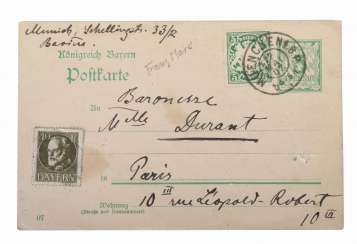 Munich, Schellingstr. 33/2
Bavière
Königreich Bayern
Postkarte
Franz Marc
MUENCHEN
An
Baronesse
Mlle Durant
in
Paris
III
10 rue Léopold-Robert
Wohnung
(Straße und Hausnummer)
10 III
BAYERN
07